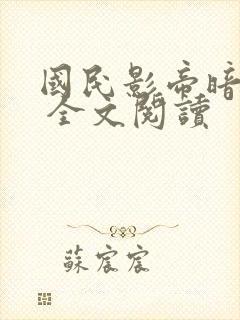 國民影帝暗
全文閱讀
蘇宸宸